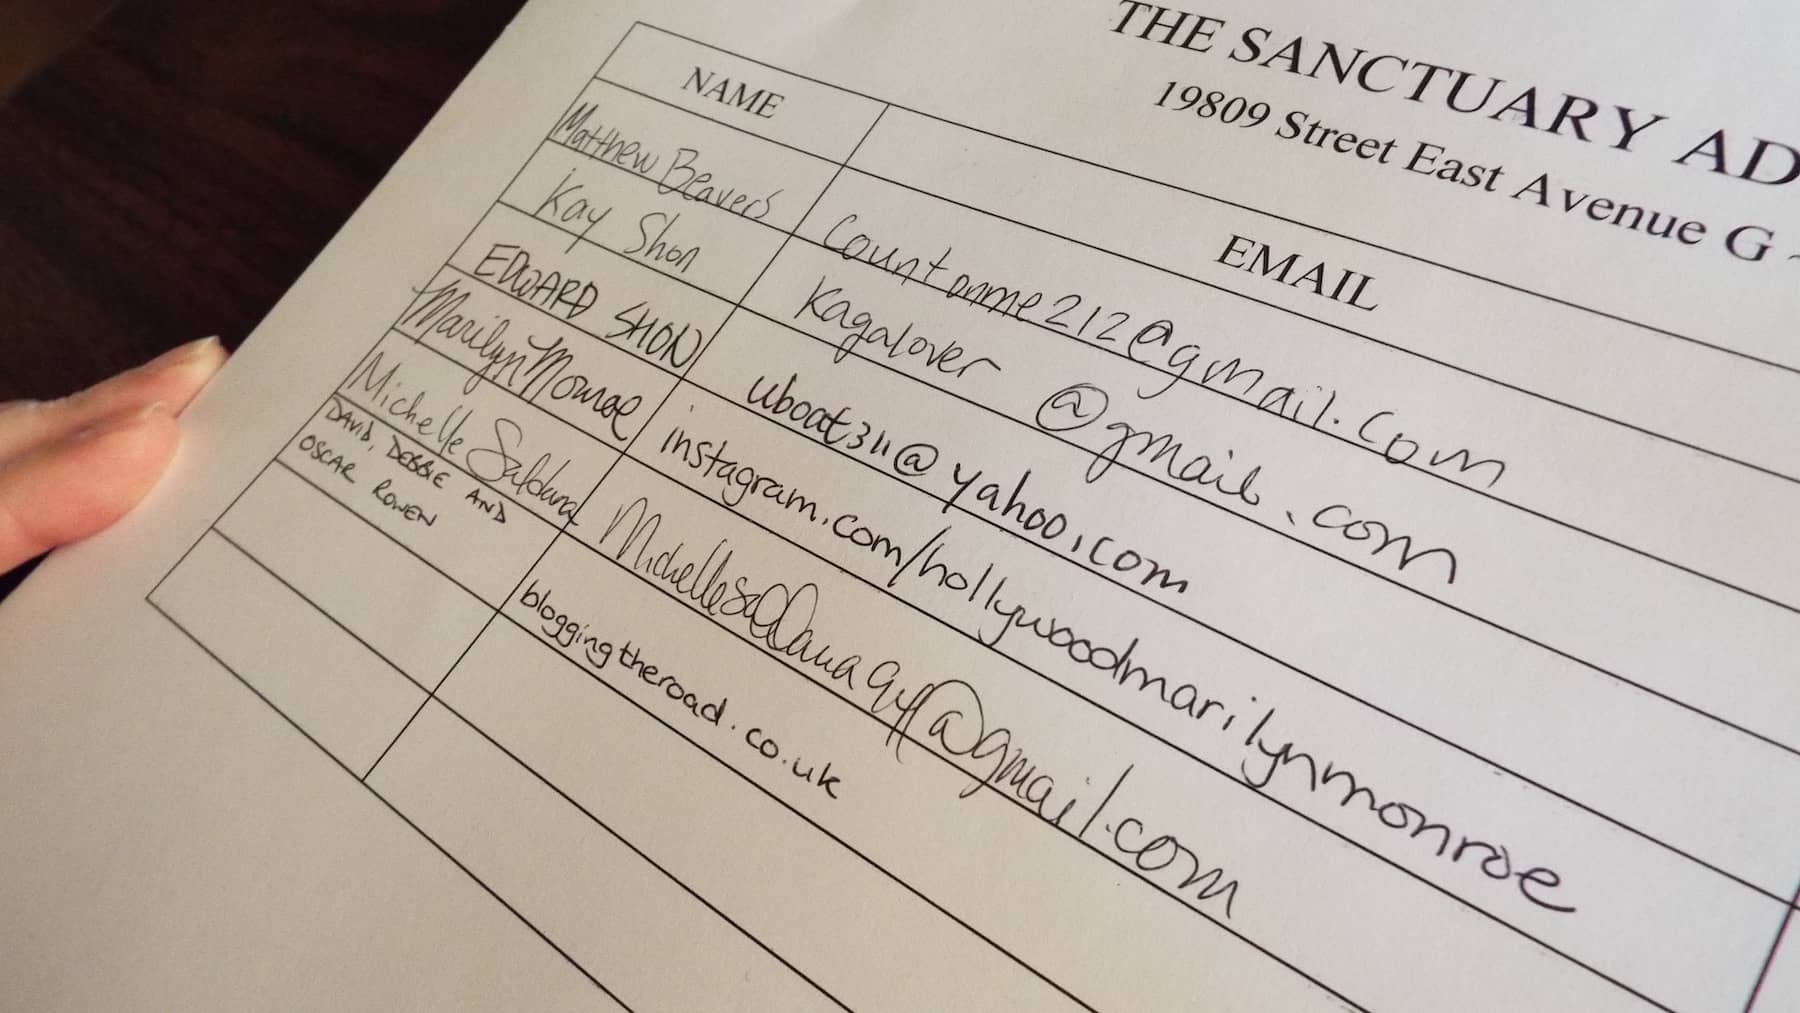 THE SANCTUARY AD
19809 Street East Avenue G
NAME EMAIL
Matthew Beavers countonme212@gmail.com
Kay Shon Kagalover @gmail.com
EDWARD SHON uboat311@yahoo.com
Marilyn Monroe instagram.com/hollywoodmarilynmonroe
Michelle Saldana
DAVID, DEBBIE AND
OSCAR ROWEN bloggingtheroad.co.uk